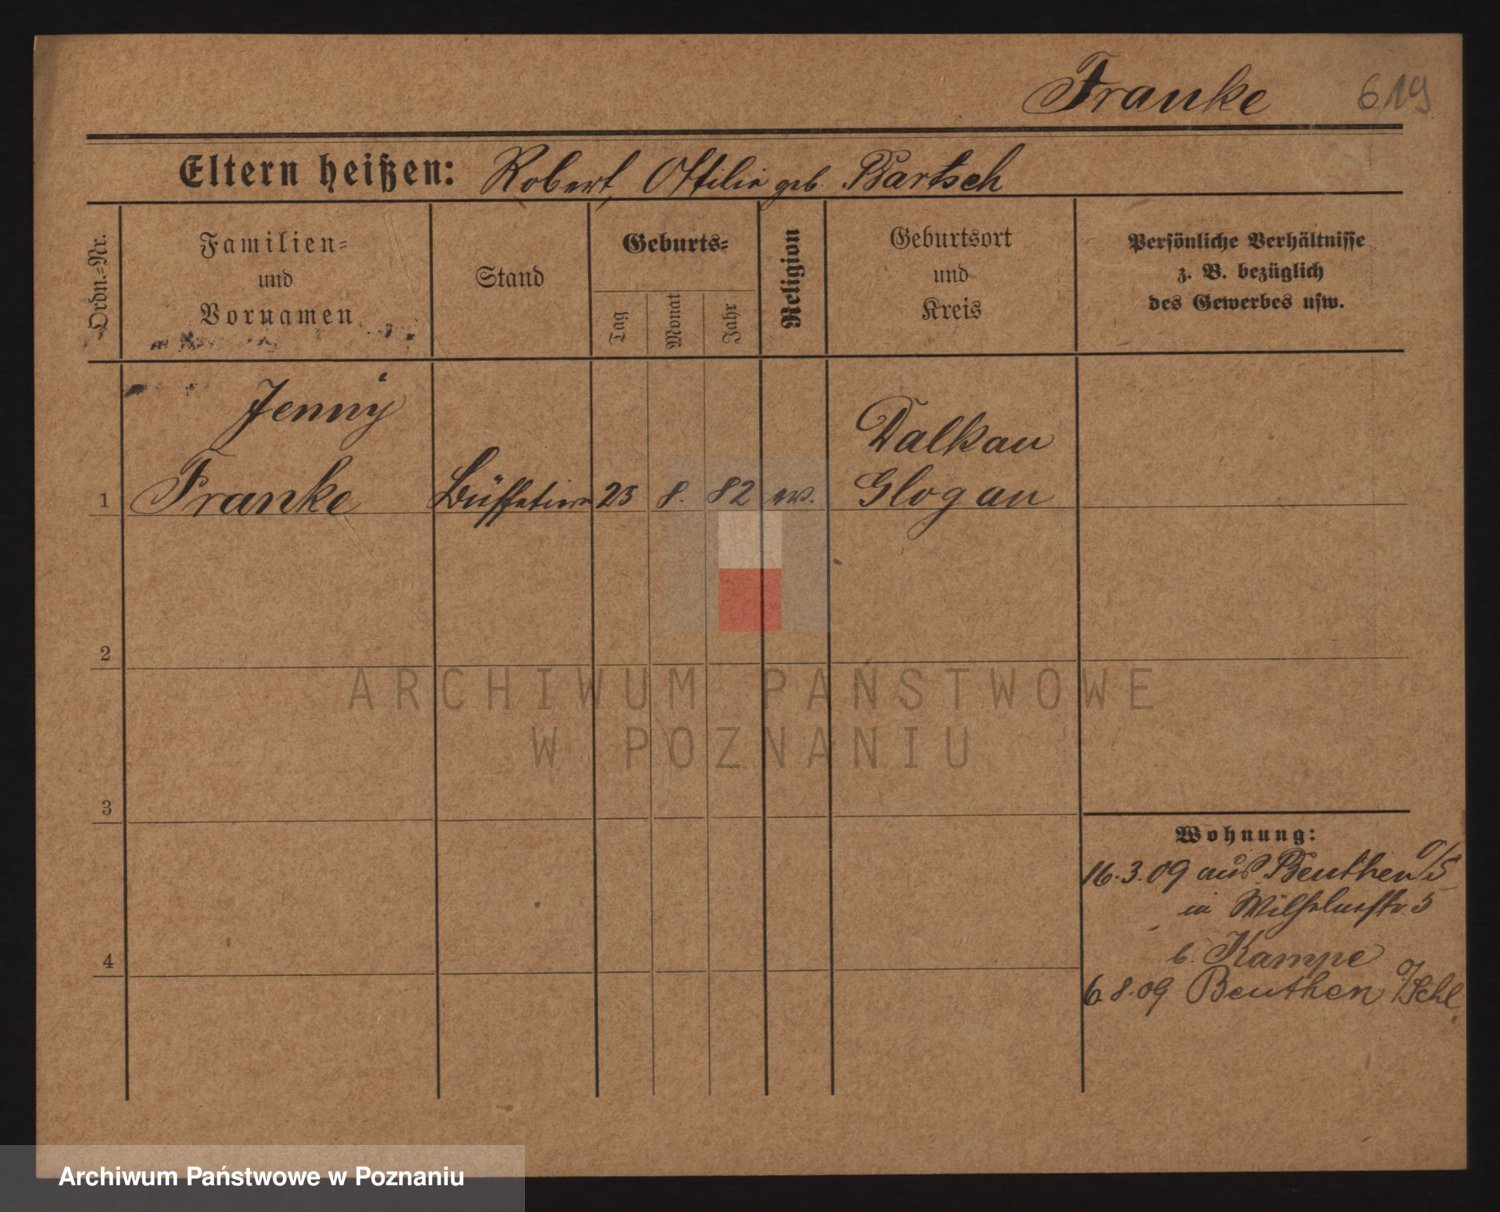 Franke 619
Eltern heißen: Robert, Ottilie geb. Bartsch
Ordn.=Nr.
Familien=
und
Vornamen
Stand
Geburts=
Tag
Monat
Jahr
Religion
Geburtsort
und
Kreis
Persönliche Verhältnisse
z. B. bezüglich
des Gewerbes usw.
Jenny
1 Franke Büffetiere 23 8. 82 ev. Dalkau
Glogau
2
3
4
Wohnung:
16.3.09 aus Beuthen O/S
in Wilhelmstr. 5
b. Kampe
6.8.09 Beuthen O/Schl.
ARCHIWUM PAŃSTWOWE
W POZNANIU
Archiwum Państwowe w Poznaniu